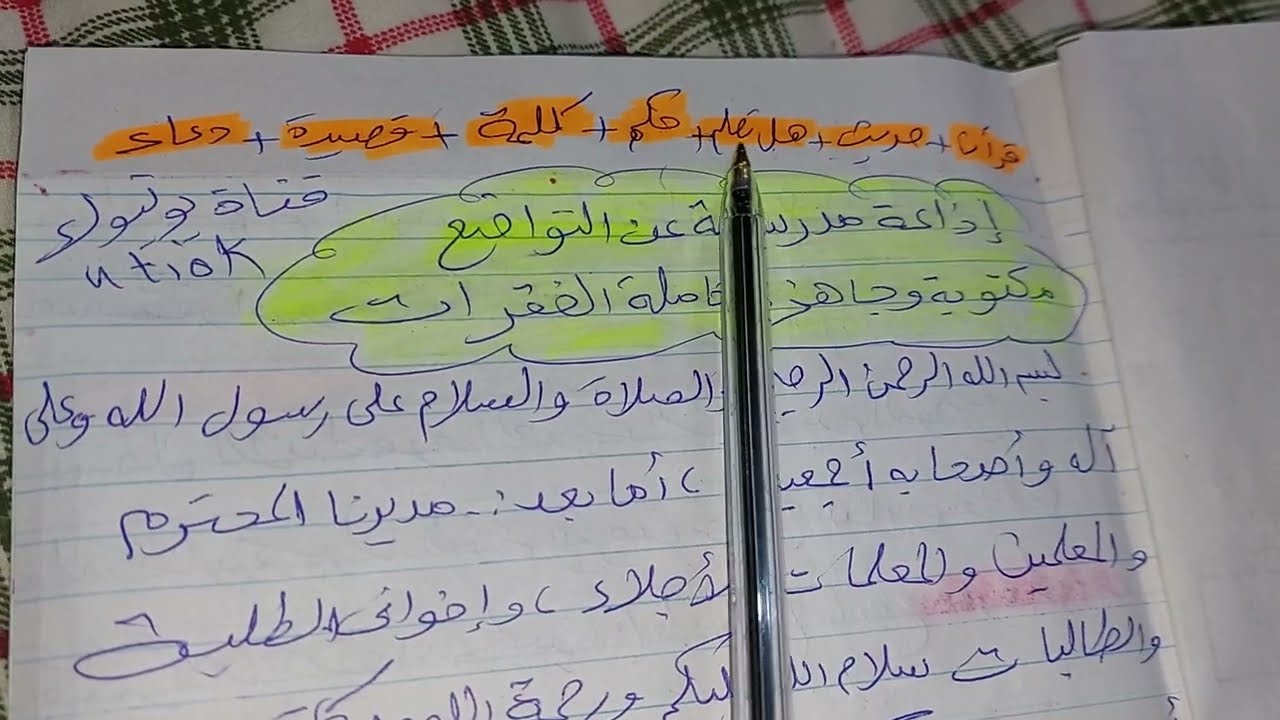 قرآن + حديث + هل تعلم + حكم + كلمة + قصيدة + دعاء
قناة يوتيوب
إذاعة مدرسية عن التواضع
مكتوبة وجاهزة كاملة الفقرات
بسم الله الرحمن الرحيم والصلاة والسلام على رسول الله وعلى
آله وأصحابه أجمعين، أما بعد:- مديرنا المحترم
والمعلمين والمعلمات الأجلاء، وإخواني الطلبة
والطالبات سلام الله عليكم ورحمة الله